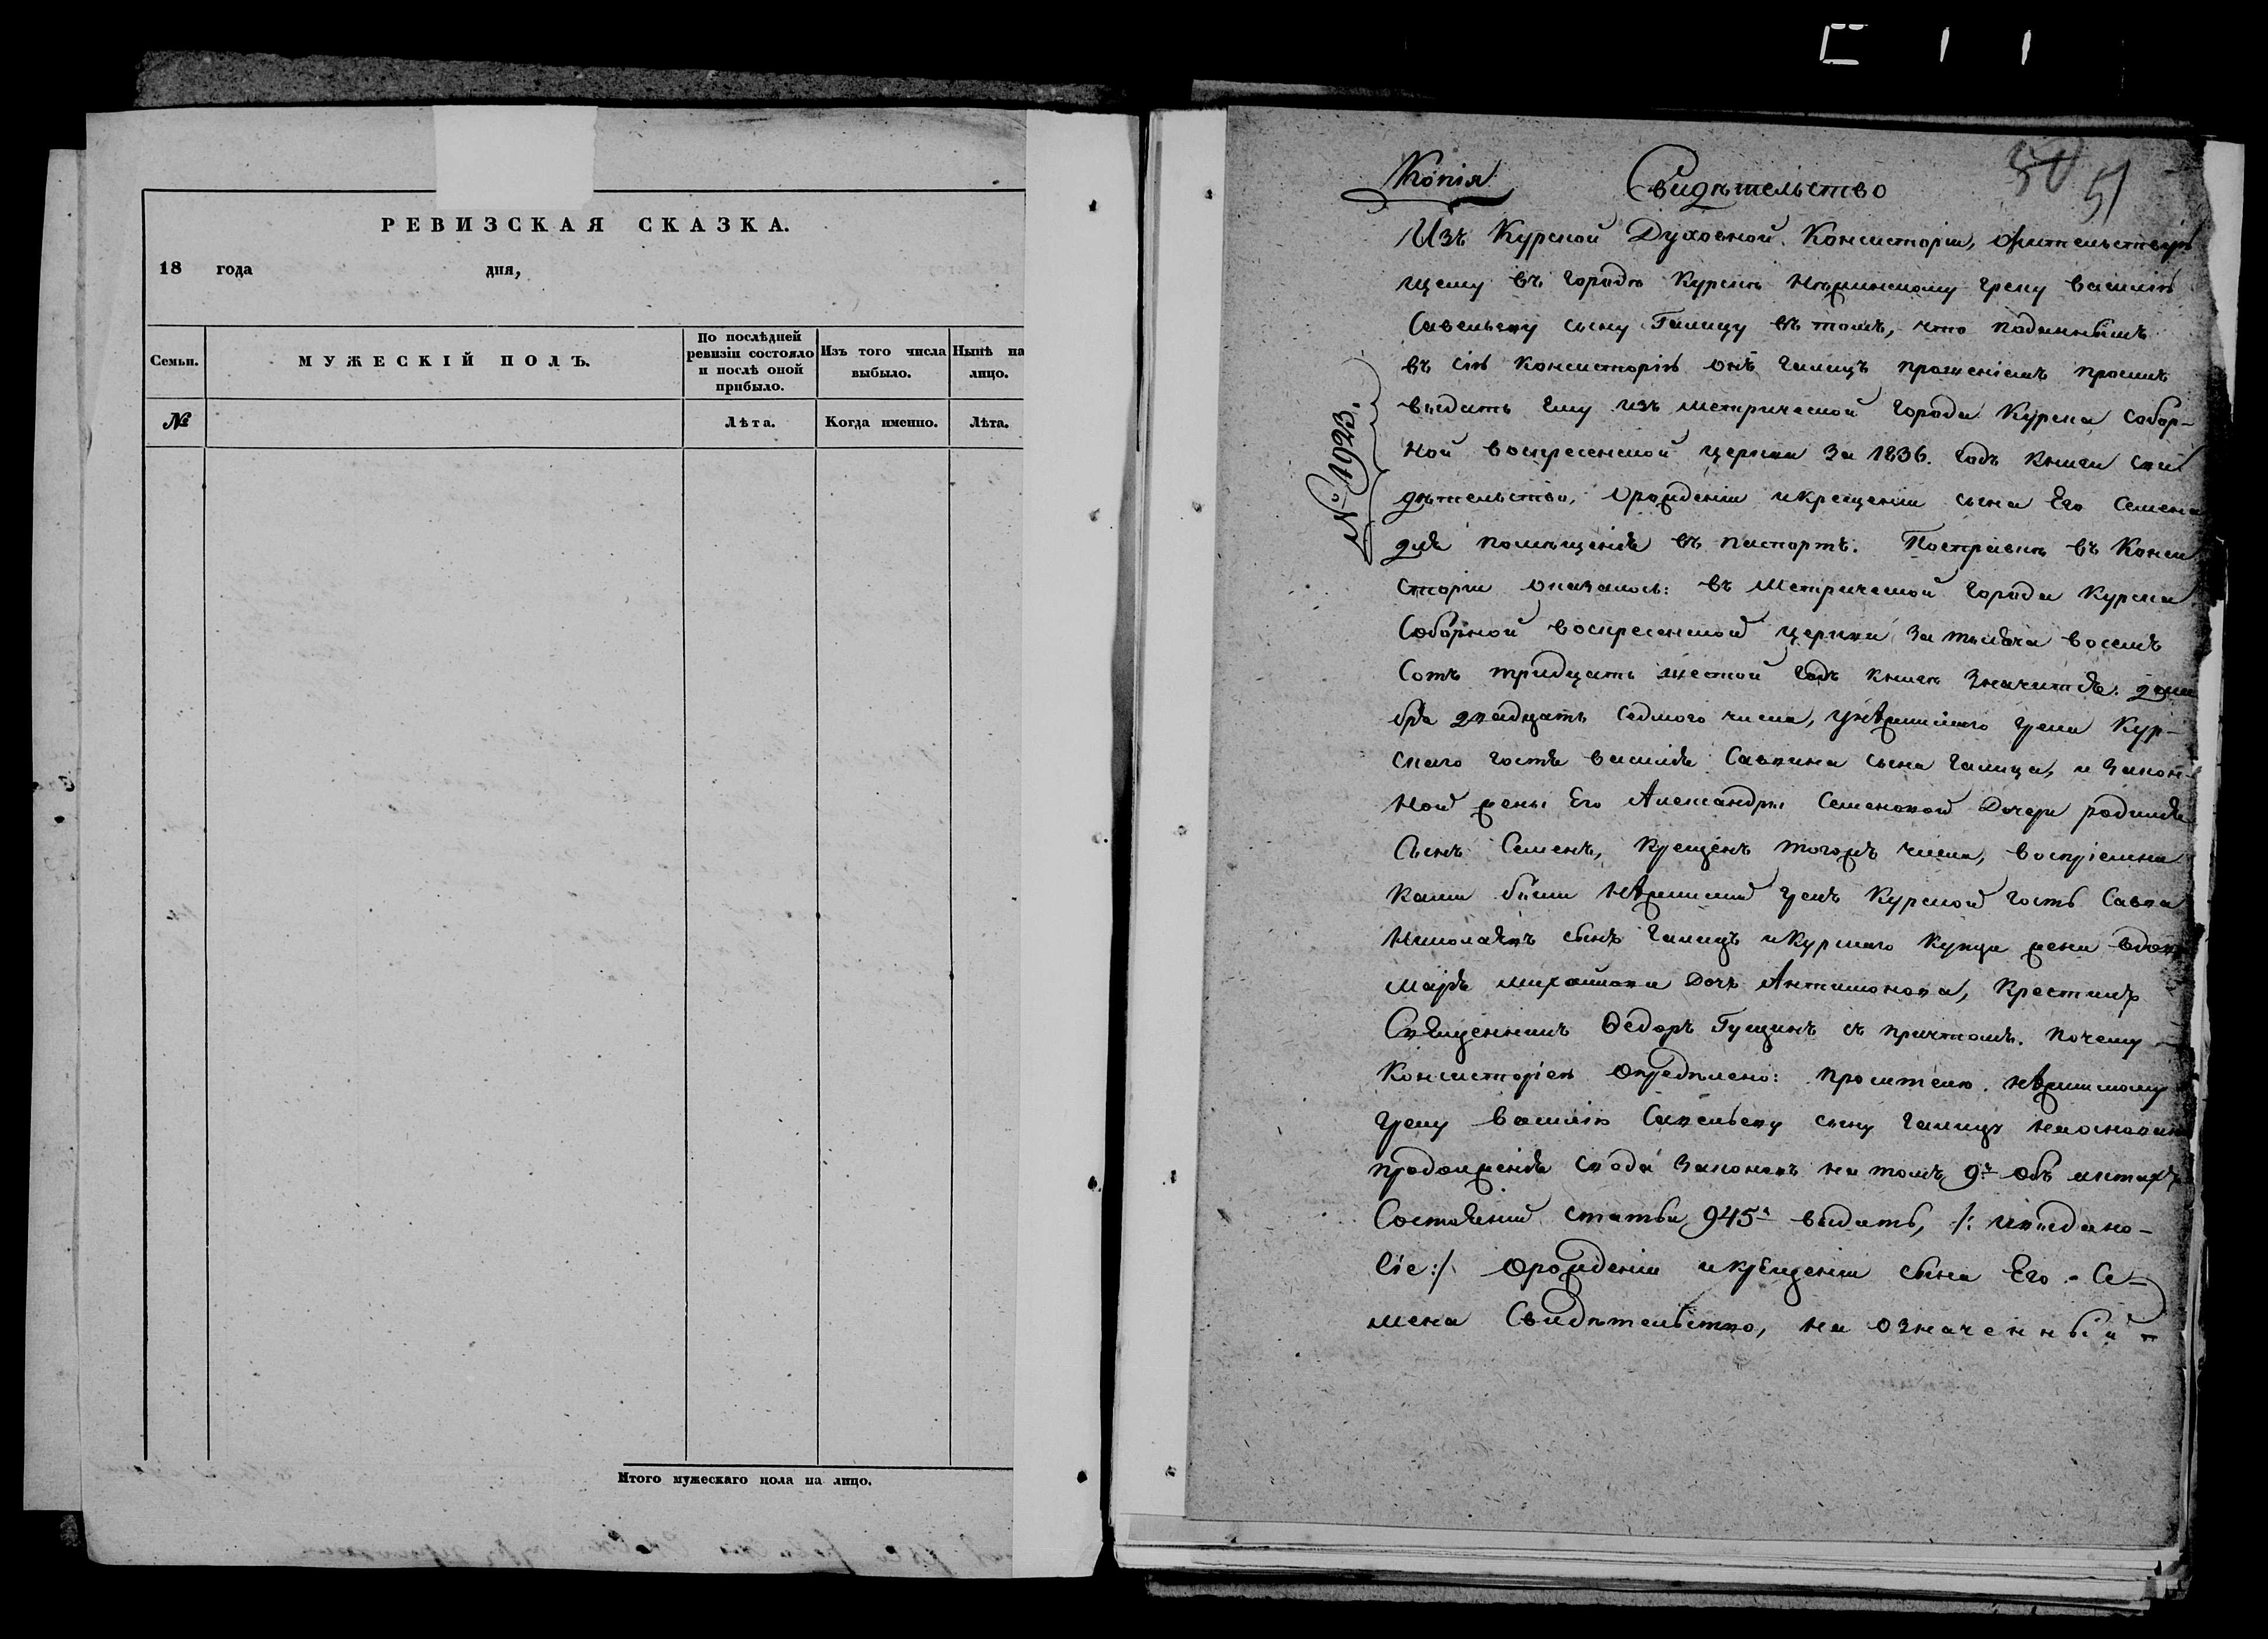 РЕВИЗСКАЯ СКАЗКА.
18 года дня,
Семьи.
МУЖЕСКІЙ ПОЛЪ.
По послѣдней ревизіи состояло и послѣ оной прибыло.
Изъ того числа выбыло.
Нынѣ на лицо.
№
Лѣта.
Когда именно.
Лѣта.
Итого мужескаго пола на лицо.
50 51
Копія Свидѣтельство
№ 1923.
Изъ Курской Духовной Консисторіи, жительствую
щему въ городѣ Курскѣ Нѣжинскому греку василію
Савельеву сыну Галицу въ томъ, что поданнымъ
въ сію Консисторію онъ галицъ прошеніемъ просилъ
выдать ему изъ метрической города Курска собор-
ной воскресенской церкви за 1836. годъ книги сви
дѣтельство, орожденіи икрещеніи сына Его Семена
для помѣщенія въ паспортъ. Посправкѣ въ Конси
сторіи оказалось: въ метрической города Курска
Соборной воскресенской церкви за тысяча восемь
Сотъ тридцать шестой годъ книгѣ значится: дека
бря двадцать седмого числа, унѣжинскаго грека Кур-
скаго гостя василія Саввина сына галица, и закон-
ной жены Его Александры Семеновой Дочери родился
Сынъ Семенъ, Крещенъ тогожъ числа, воспріемни
ками были нѣжинский грекъ Курской гость Савва
Николаевъ сынъ галицъ икурскаго купца жена вдова
марья михайлова дочь Антимонова, Крестилъ
Священникъ Ѳедоръ Гущинъ съ причтомъ. почему
Консисторіею опредѣлено: просителю нѣжинскому
греку василію Савельеву сыну галицу наосновании
продолженія свода законовъ на томъ 9й объ
Состояній статьи 945й выдать, /: ивыдано-
сіе :/ орожденіи икрещеніи сына Его Се-
мена Свидѣтельство, на означенный